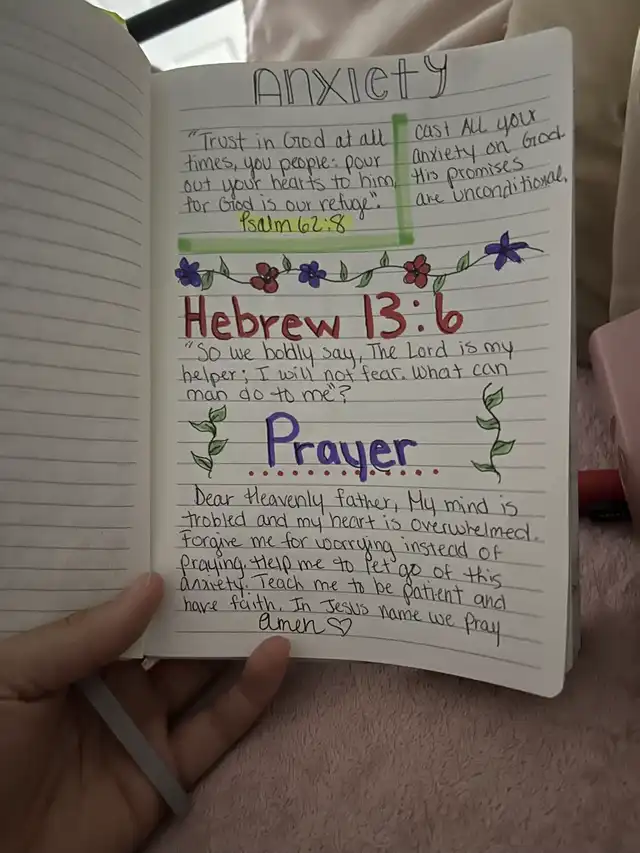 ANXIETY
"Trust in God at all
times, you people: pour
out your hearts to him,
for God is our refuge".
Psalm 62:8
cast ALL your
anxiety on God.
His promises
are unconditional.
Hebrew 13:6
"So we boldly say, The Lord is my
helper; I will not fear. What can
man do to me"?
Prayer
Dear Heavenly father, My mind is
trobled and my heart is overwhelmed.
Forgive me for worrying instead of
praying. Help me to let go of this
anxiety. Teach me to be patient and
have faith. In Jesus name we pray
amen